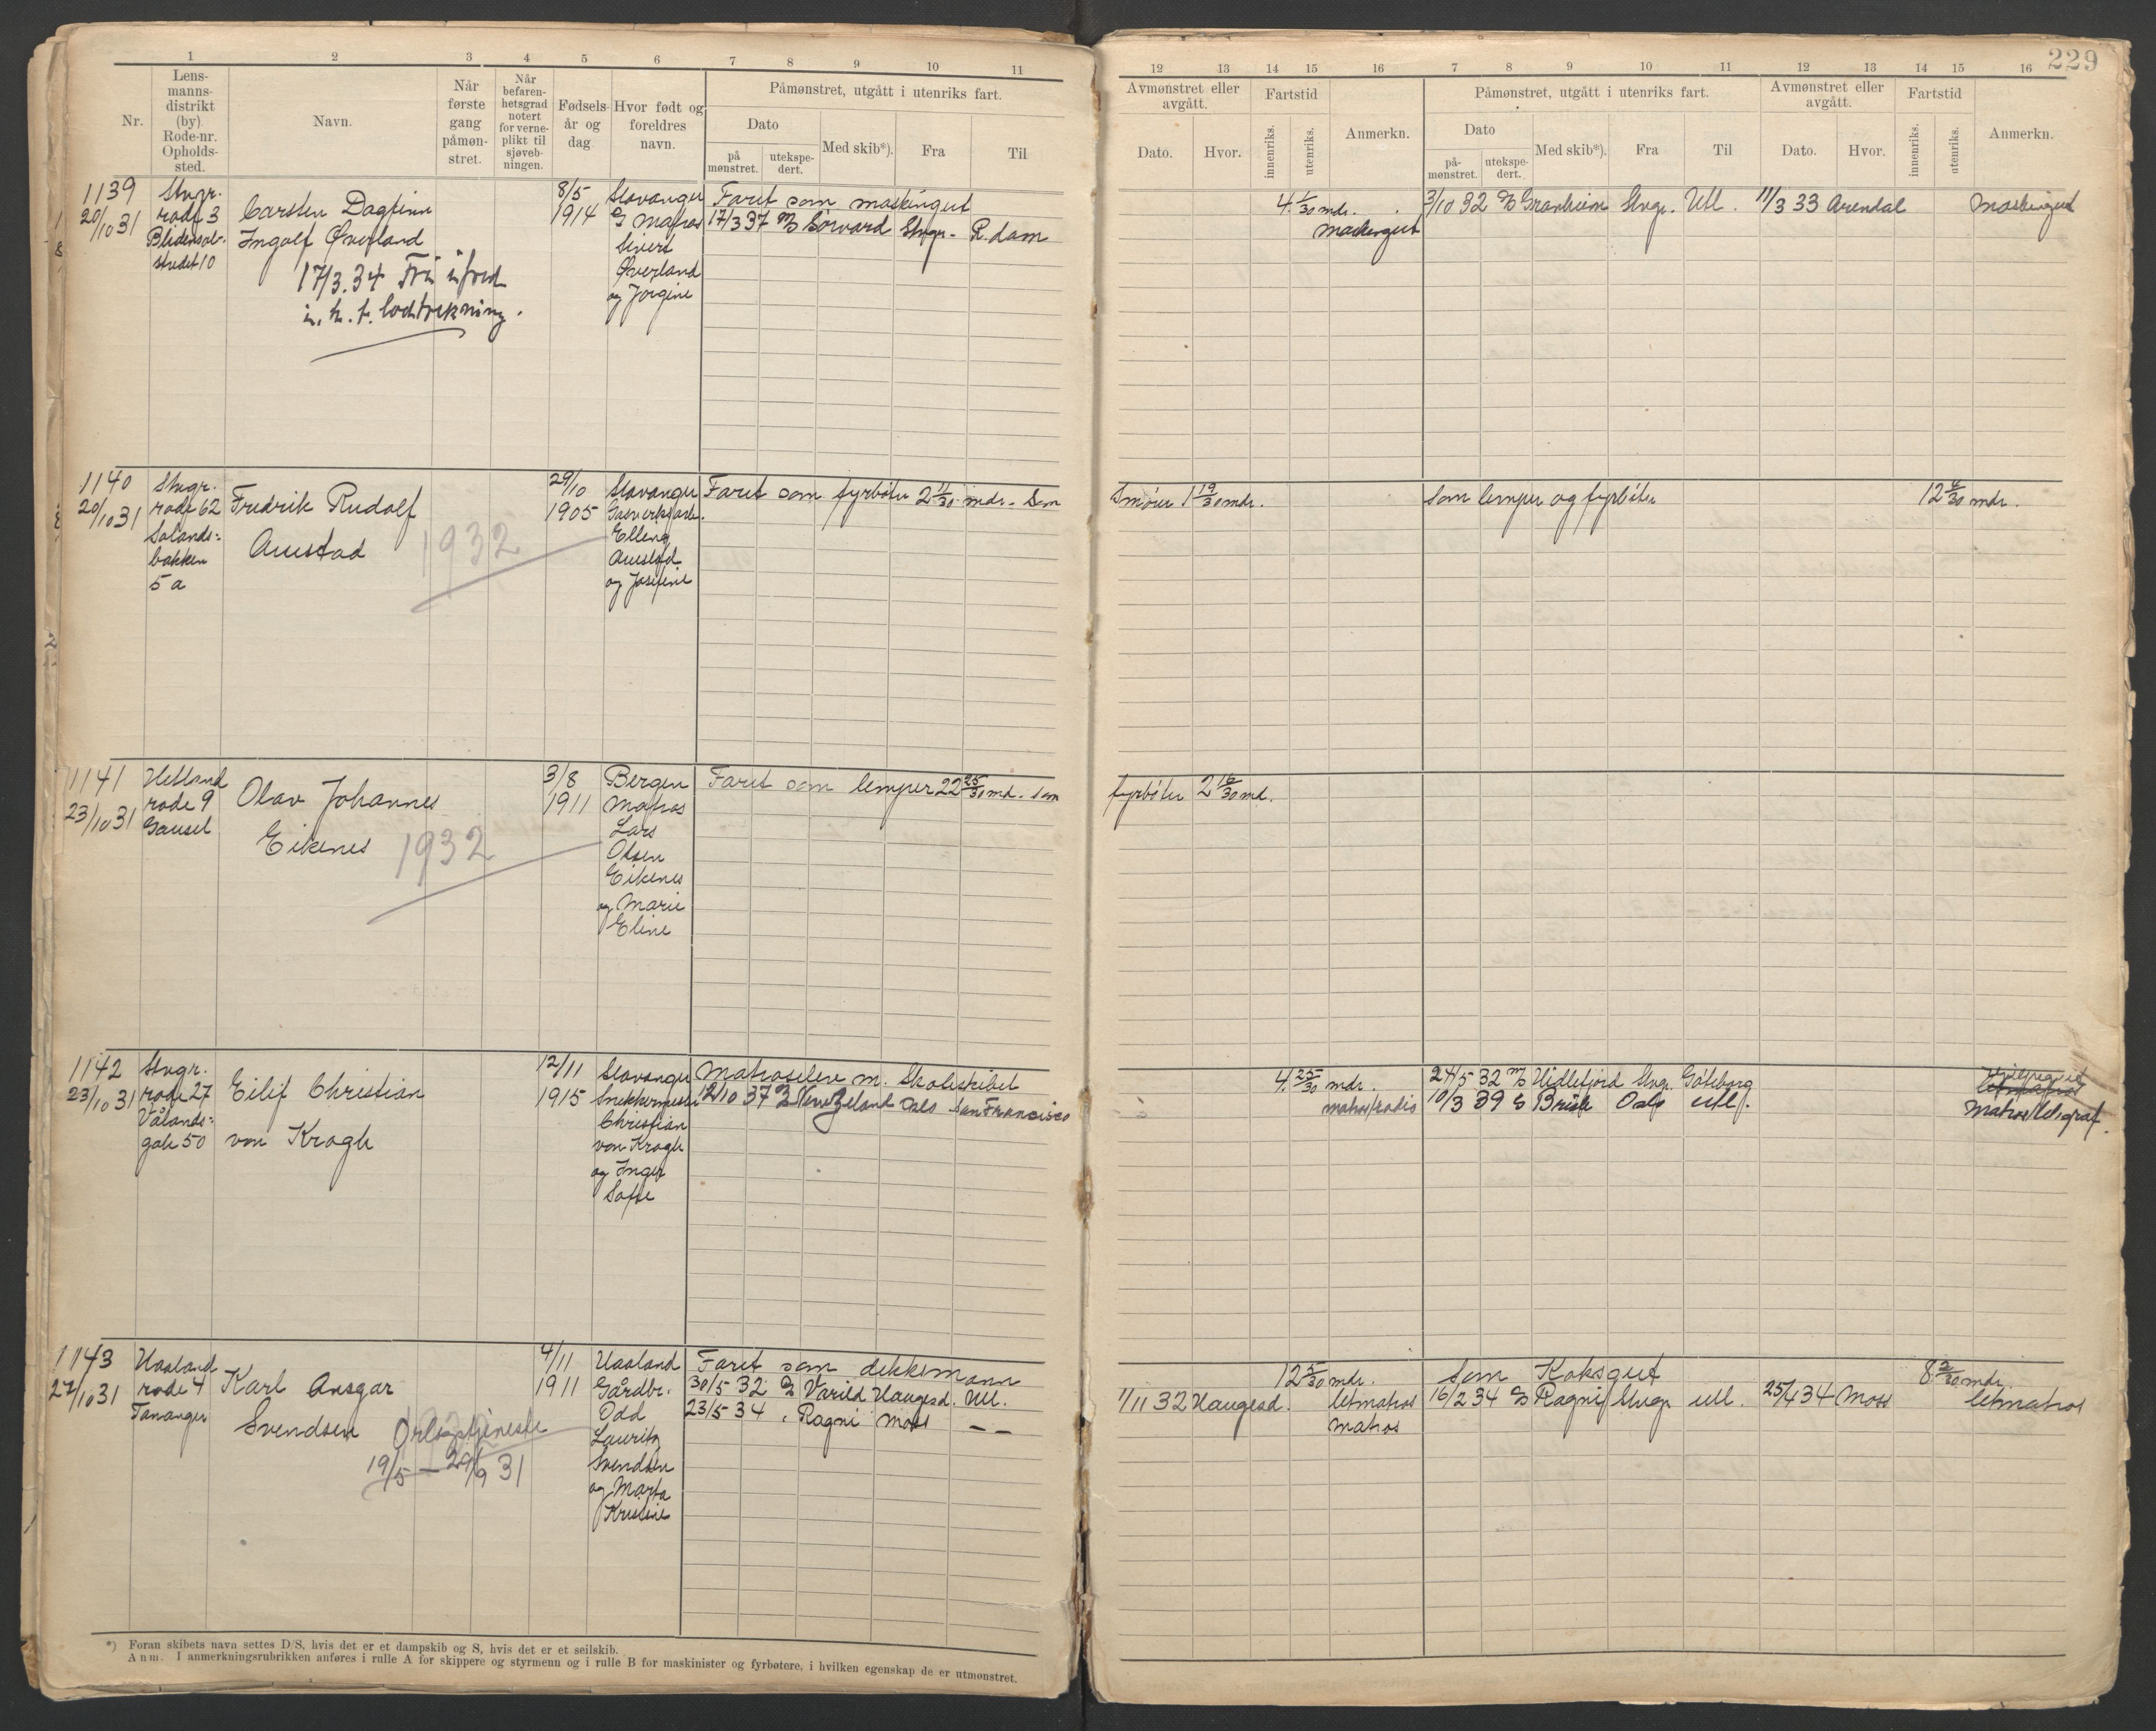 229
1 2 3 4 5 6 7 8 9 10 11
Nr.
Lens-
manns-
distrikt
(by)
Rode-nr.
Opholds-
sted.
Navn.
Når
første
gang
påmøn-
stret.
Når
befaren-
hetsgrad
notert
for verne-
plikt til
sjøveb-
ningen.
Fødsels-
år og
dag
Hvor født og
foreldres
navn.
Påmønstret, utgått i utenriks fart.
Dato
på
mønstret.
utekspe-
dert.
Med skib*).
Fra
Til
12 13 14 15 16 7 8 9 10 11 12 13 14 15 16
Avmønstret eller
avgått.
Dato.
Hvor.
Fartstid
innenriks.
utenriks.
Anmerkn.
Påmønstret, utgått i utenriks fart.
Dato
på-
mønstret.
utekspe-
dert.
Med skib*).
Fra
Til
Avmønstret eller
avgått.
Dato.
Hvor.
Fartstid
innenriks.
utenriks.
Anmerkn.
1139
20/10 31
Stvgr.
rode 3
stredet 10
Carsten Dagfinn
Ingolf Øverland
17/3.34 Fri i fred
i. h. t. lodtrekning.
8/5
1914
Stavanger
Matros
Sivert
Øverland
og Jørgine
Faret som maskingut
17/3 37 M/S Sørvard Stvgr. R.dam
4 1/30 mdr.
maskingut
3/10 32 Granheim Stvgr. Utl. 11/3 33 Arendal maskingut
1140
20/10 31
Stvgr.
rode 62
Sølands-
bakken
5 a
Fredrik Rudolf
Auestad
1932
29/10
1905
Stavanger
Gasverksarb.
Elling
Auestad
og Josefine
Faret som fyrbøter 2 11/30 mdr. Som
smører 1 19/30 mdr.
som lemper og fyrbøter
12 6/30 mdr.
1141
23/10 31
Hetland
rode 9
Gausel
Olav Johannes
Eikenes
1932
3/8
1911
Bergen
Matros
Lars
Olsen
Eikenes
og Marie
Eline
Faret som lemper 22 25/30 md. som
fyrbøter 2 16/30 md.
1142
23/10 31
Stvgr.
rode 27
Vålands-
gate 50
Eilif Christian
von Krogh
12/11
1915
Stavanger
Snekkermester
Christian
von Krogh
og Inger
Sofie
Matroselev m. Skoleskibet
12/10 37 Oslo San Francisco
4 25/30 mdr.
matros/radio
24/5 32 M/S Hidlefjord Stvgr. Göteborg
10/3 39 Brisk Oslo utl.
matros/telegraf.
1143
27/10 31
Haaland
rode 4
Tananger
Karl Ansgar
Svendsen
Orlogstjeneste
19/5 – 29/9 31
4/11
1911
Haaland
Gårdbr.
Odd
Lauritz
Svendsen
og Marta
Kristine
Faret som dekksmann
30/5 32 Varild Haugesd. Utl.
23/5 34 Ragni Moss – –
12 5/30 mdr.
1/11 32 Haugesd. letmatros
matros
Som Koksgut
8 2/30 mdr.
16/2 34 Ragni Stvgr. utl. 25/4 34 Moss letmatros
*) Foran skibets navn settes D/S, hvis det er et dampskib og S, hvis det er et seilskib.
Anm. I anmerkningsrubrikken anføres i rulle A for skippere og styrmenn og i rulle B for maskinister og fyrbøtere, i hvilken egenskap de er utmønstret.